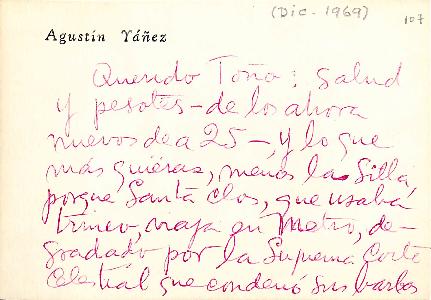 (Dic. 1969)
107
Agustín Yáñez
Querido Toño: Salud
y pesotes—de los ahora
nuevos de a 25—y lo que
más quieras, menos la Silla,
porque Santa Clos, que usaba
trineo, viaja en Metro, de-
gradado por la Suprema Corte
Celestial que condenó sus barbas